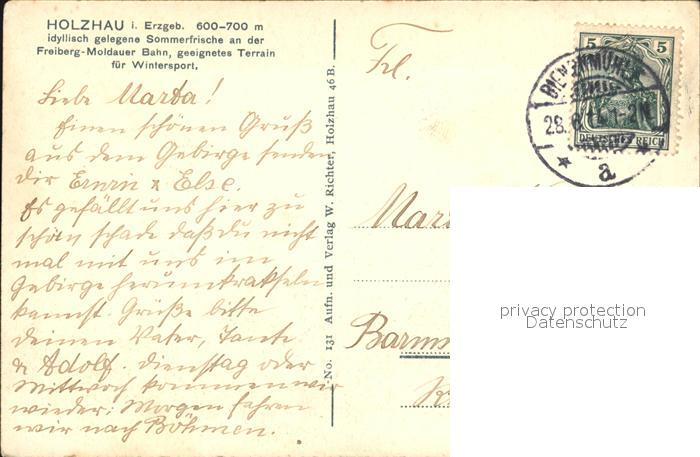 HOLZHAU i. Erzgeb. 600-700 m
idyllisch gelegene Sommerfrische an der
Freiberg-Moldauer Bahn, geeignetes Terrain
für Wintersport.
Liebe Marta!
Einen schönen Gruß
aus dem Gebirge senden
dir Erwin & Else.
Es gefällt uns hier zu
schön, schade daß du nicht
mal mit uns im
Gebirge herumkrakseln
kannst. Grüße bitte
deinen Vater, Tante
& Adolf. Dienstag oder
Mittwoch kommen wir
wieder. Morgen fahren
wir nach Böhmen.
No. 131 Aufn. und Verlag W. Richter, Holzhau 46 B.
Frl.
Mart
Barm
5 5
DEUTSCHES REICH
BIENENMÜHLE
28.
a
privacy protection
Datenschutz